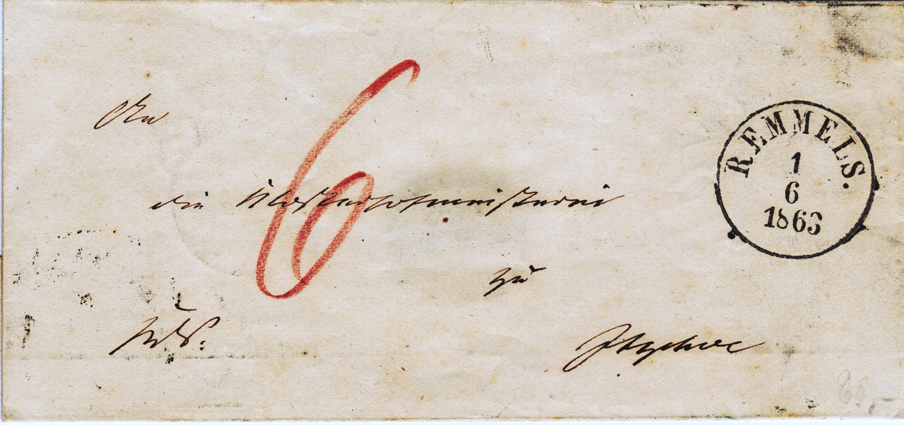 An
6
die Klosterhofmeisterei
zu
Itzehoe
REMMELS.
1
6
1863